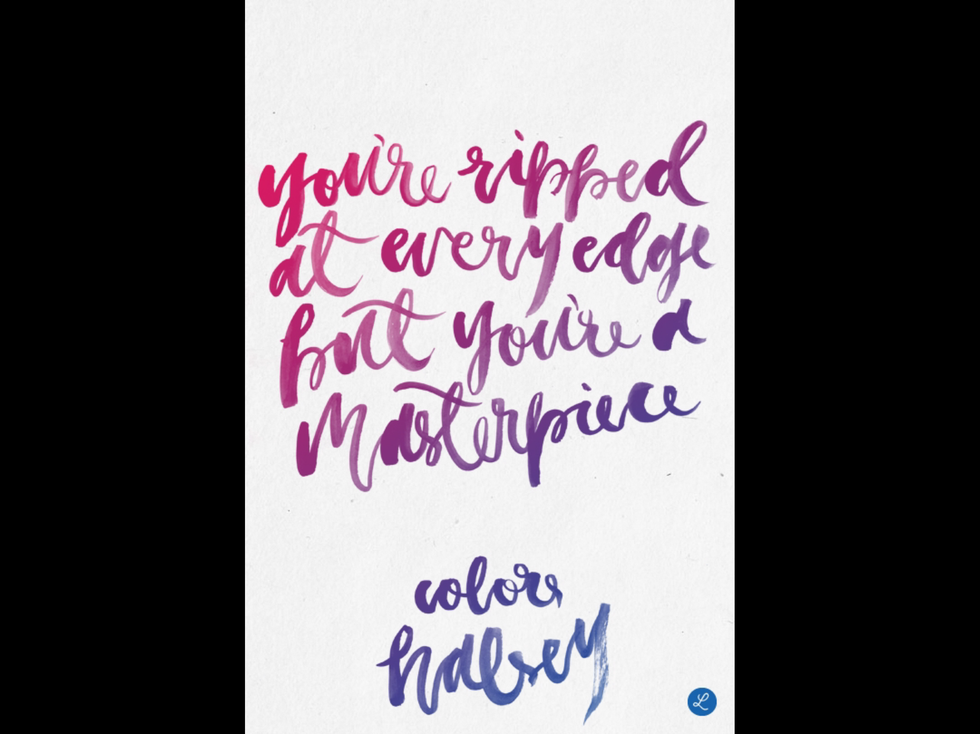 you're ripped
at every edge
but you're a
Masterpiece
colors
halsey
L